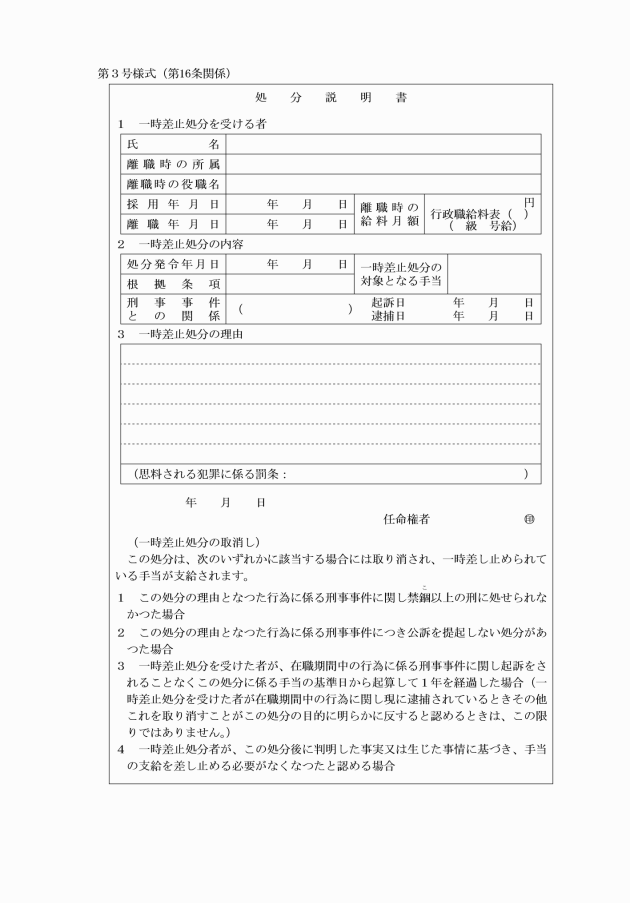 第３号様式（第16条関係）
処分説明書
１　一時差止処分を受ける者
氏名
離職時の所属
離職時の役職名
採用年月日　年　月　日　離職時の給料月額　円
離職年月日　年　月　日　行政職給料表（　）
（　級　号給）
２　一時差止処分の内容
処分発令年月日　年　月　日　一時差止処分の対象となる手当
根拠条項
刑事事件との関係　（　）　起訴日　年　月　日
逮捕日　年　月　日
３　一時差止処分の理由
（思料される犯罪に係る罰条：　）
年　月　日
任命権者　㊞
（一時差止処分の取消し）
この処分は、次のいずれかに該当する場合には取り消され、一時差し止められて
いる手当が支給されます。
１　この処分の理由となつた行為に係る刑事事件に関し禁錮こ以上の刑に処せられな
かつた場合
２　この処分の理由となつた行為に係る刑事事件につき公訴を提起しない処分があ
つた場合
３　一時差止処分を受けた者が、在職期間中の行為に係る刑事事件に関し起訴をさ
れることなくこの処分に係る手当の基準日から起算して１年を経過した場合（一
時差止処分を受けた者が在職期間中の行為に関し現に逮捕されているときその他
これを取り消すことがこの処分の目的に明らかに反すると認めるときは、この限
りではありません。）
４　一時差止処分者が、この処分後に判明した事実又は生じた事情に基づき、手当
の支給を差し止める必要がなくなつたと認める場合